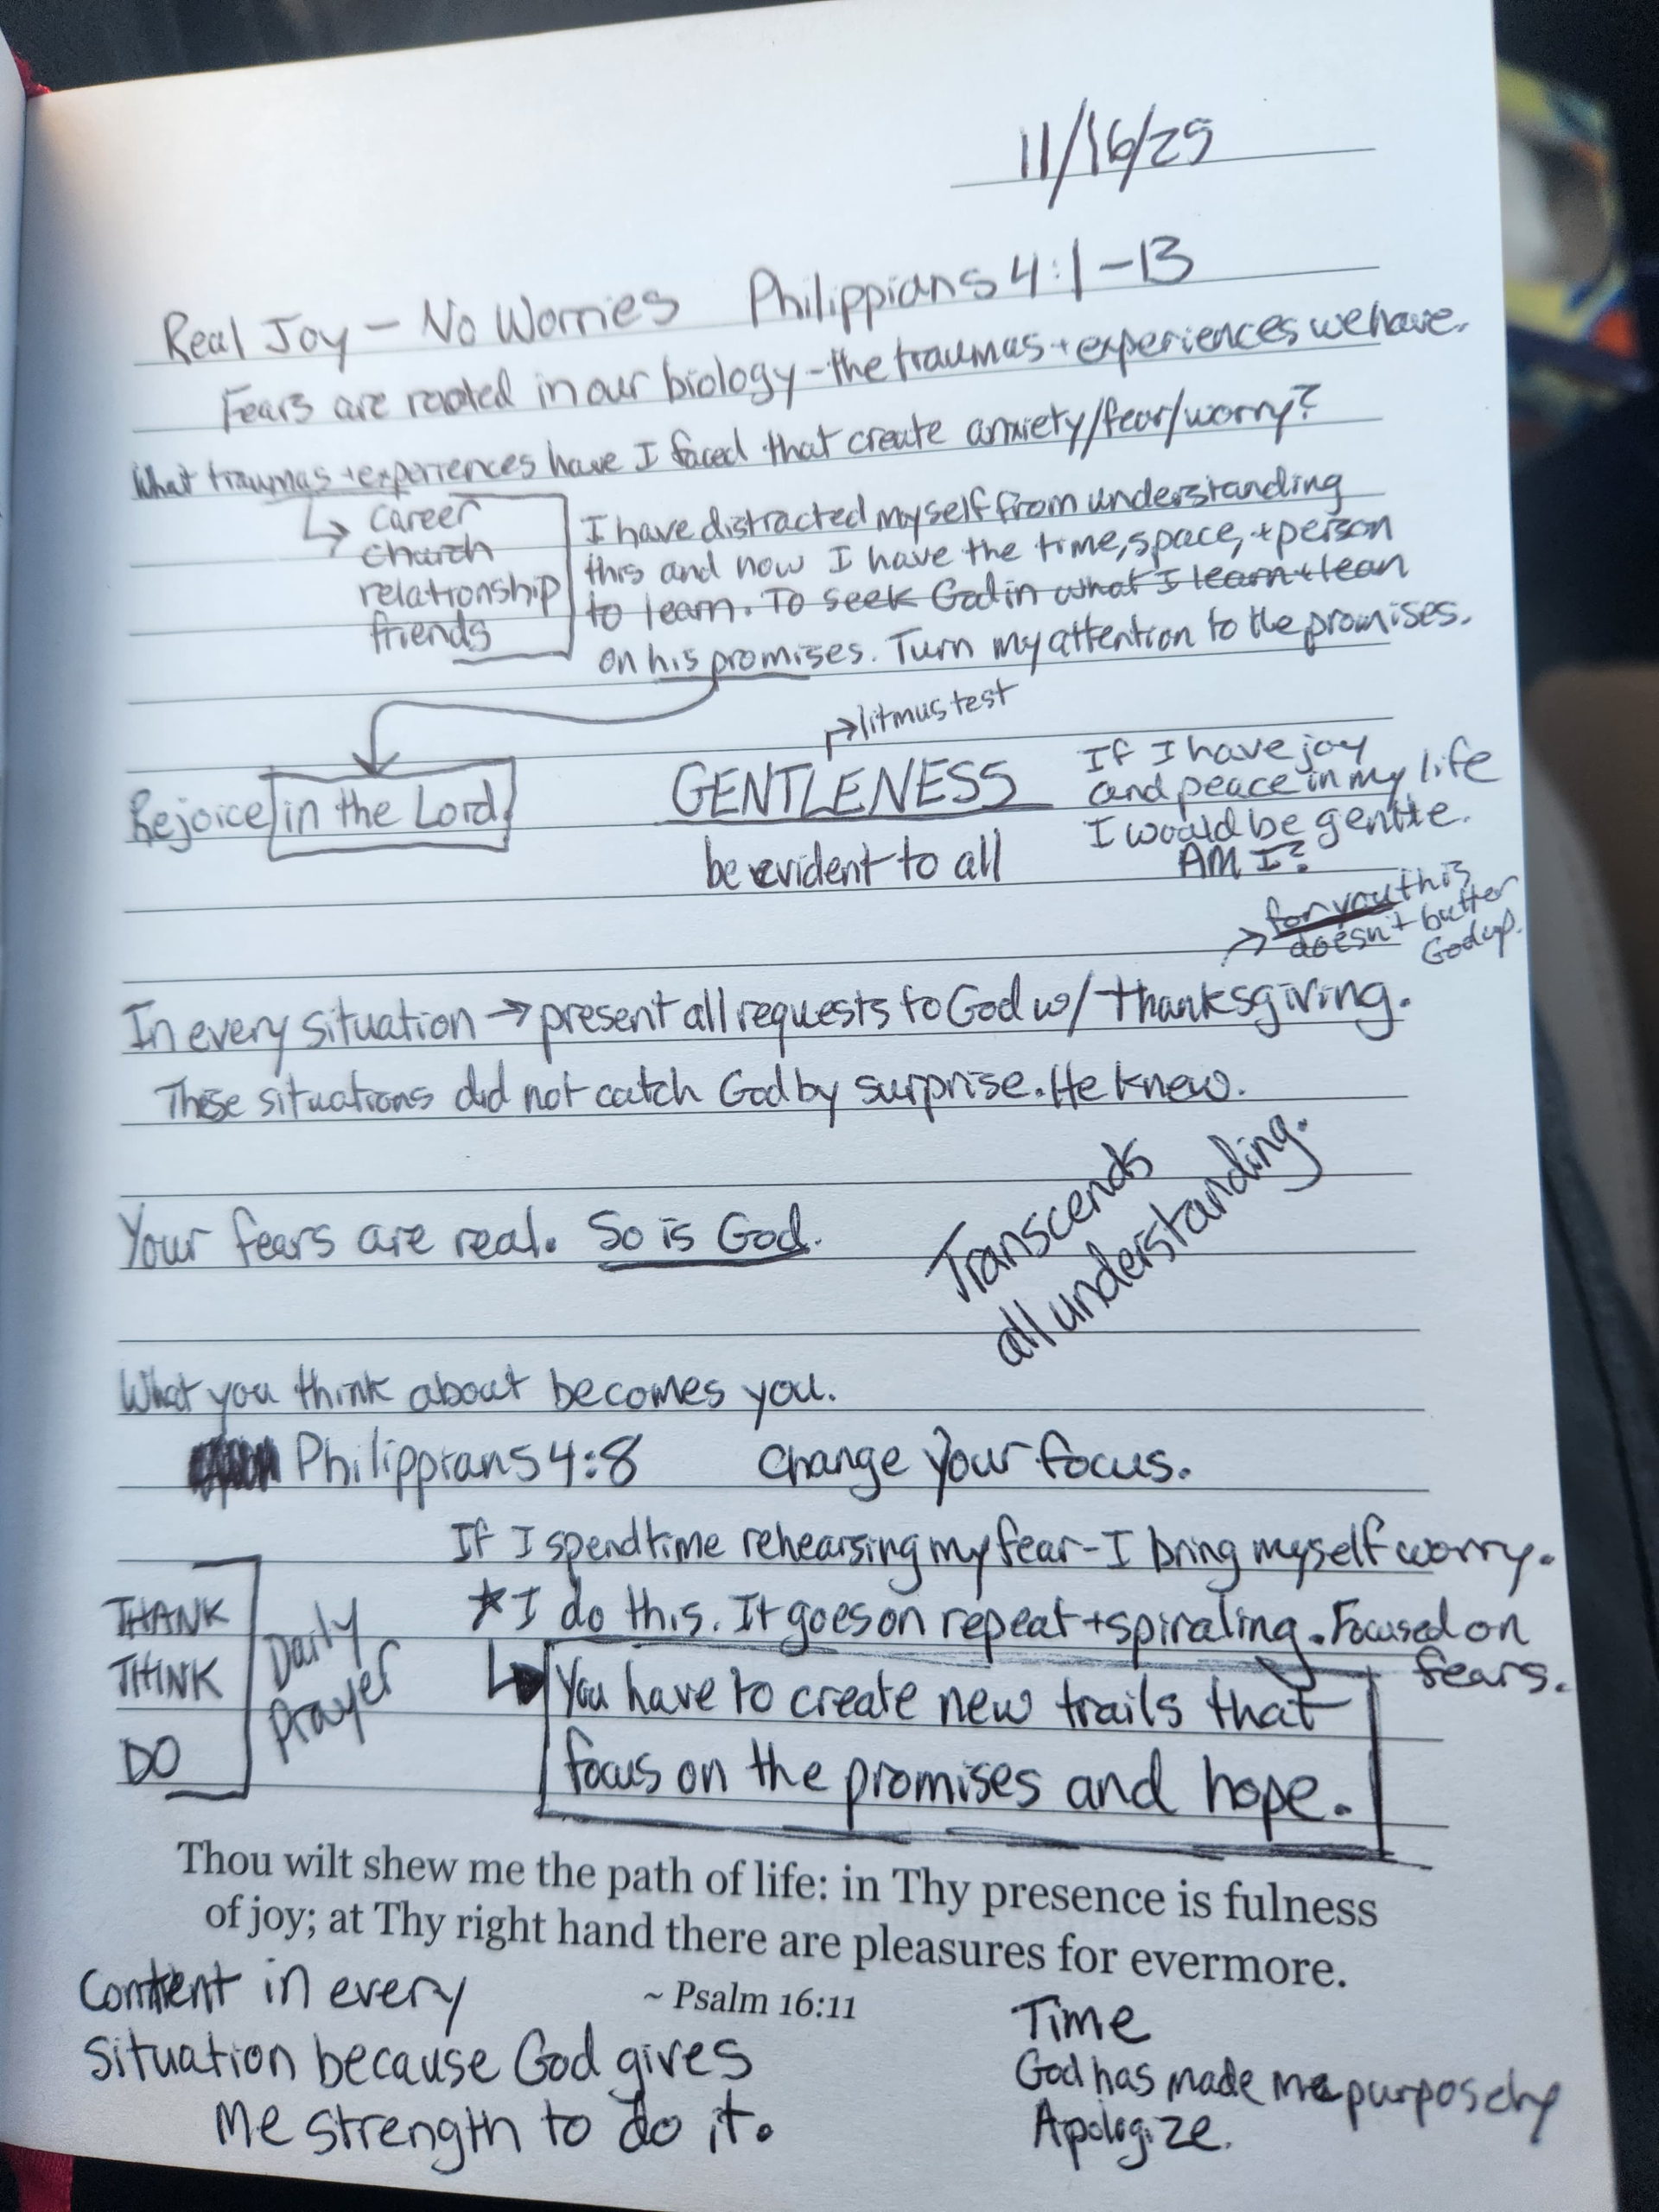 11/16/25
Real Joy - No Worries Philippians 4:1-13
Fears are rooted in our biology - the traumas + experiences we have.
What traumas + experiences have I faced that create anxiety/fear/worry?
↳ career
church
relationship
friends
I have distracted myself from understanding
this and now I have the time, space, + person
to learn. To seek God in what I learn + lean
on his promises. Turn my attention to the promises.
Rejoice in the Lord
→ litmus test
GENTLENESS
be evident to all
If I have joy
and peace in my life
I would be gentle.
AM I?
→ for you this
doesn't butter
God up.
In every situation → present all requests to God w/ thanksgiving.
These situations did not catch God by surprise. He knew.
Your fears are real. So is God.
Transcends
all understanding.
What you think about becomes you.
Philippians 4:8 Change your focus.
If I spend time rehearsing my fear - I bring myself worry.
★ I do this. It goes on repeat + spiraling. Focused on
fears.
↳ You have to create new trails that
focus on the promises and hope.
THANK
THINK
DO
Daily
Prayer
Thou wilt shew me the path of life: in Thy presence is fulness
of joy; at Thy right hand there are pleasures for evermore.
~ Psalm 16:11
Content in every
situation because God gives
me strength to do it.
Time
God has made me purposely
Apologize.